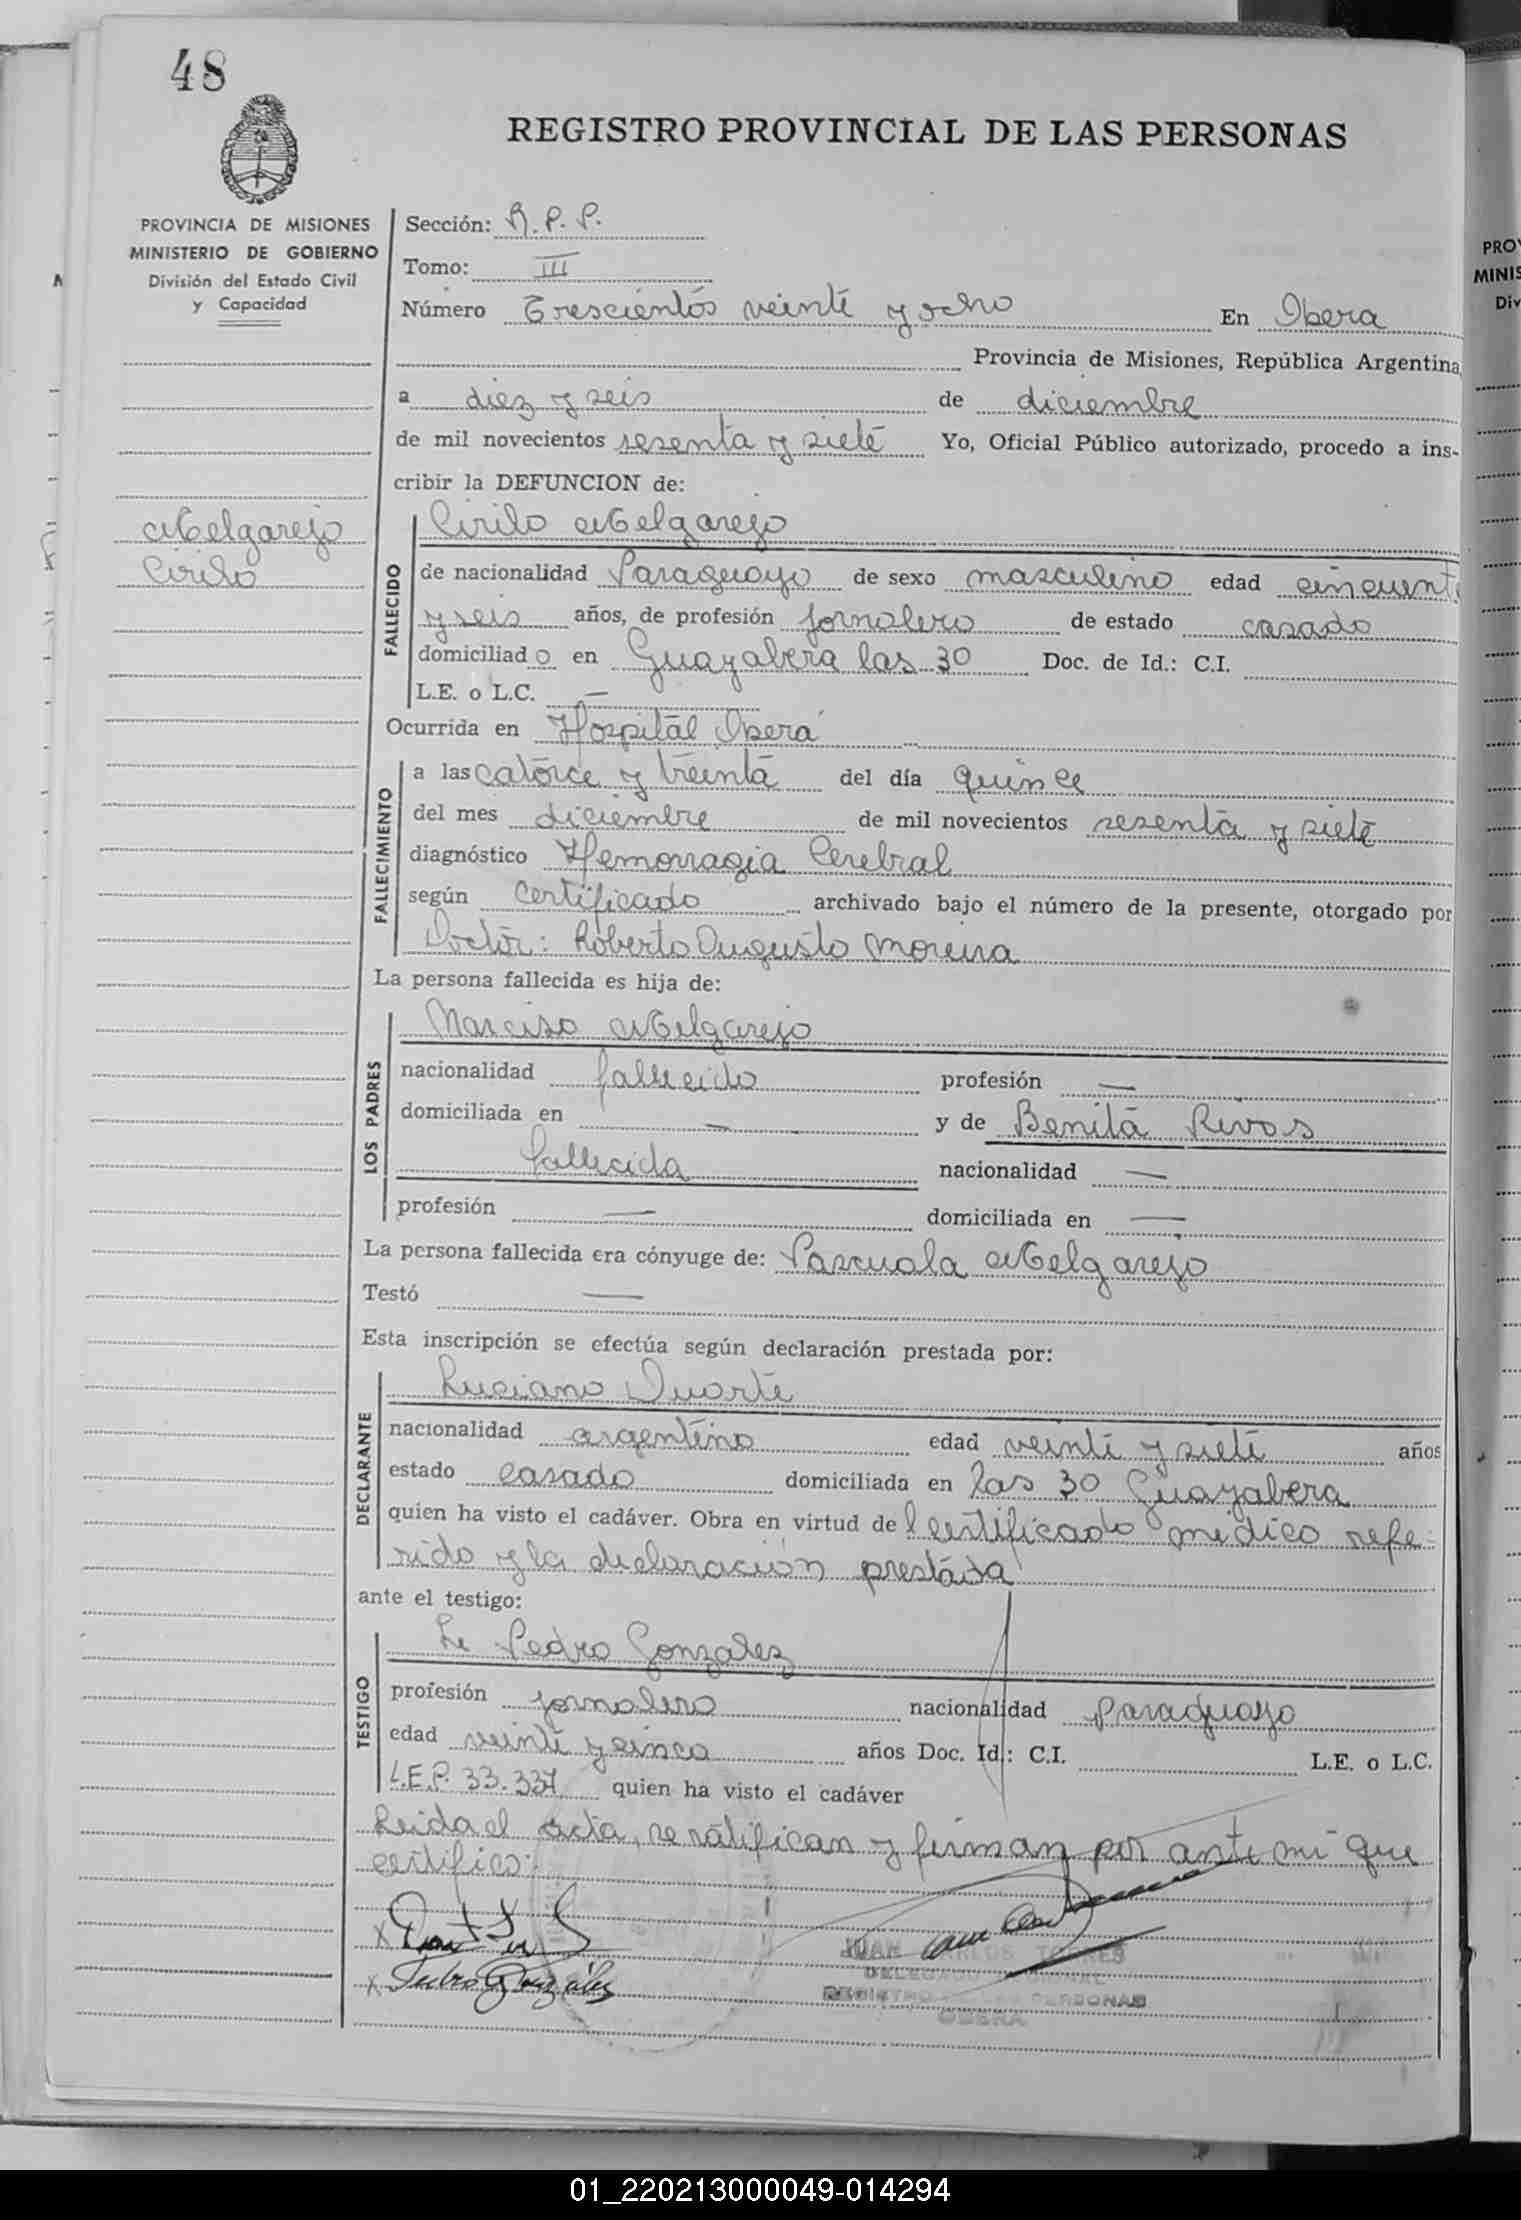 48
REGISTRO PROVINCIAL DE LAS PERSONAS
PROVINCIA DE MISIONES
MINISTERIO DE GOBIERNO
División del Estado Civil
y Capacidad
Melgarejo
Cirilo
Sección: R.P.P.
Tomo: III
Número Trescientos veinte y ocho En Obera
Provincia de Misiones, República Argentina
a diez y seis de diciembre
de mil novecientos sesenta y siete Yo, Oficial Público autorizado, procedo a ins-
cribir la DEFUNCION de:
FALLECIDO
Cirilo Melgarejo
de nacionalidad Paraguayo de sexo masculino edad cincuenta
y seis años, de profesión jornalero de estado casado
domiciliado en Guayabera las 30 Doc. de Id.: C.I.
L.E. o L.C. —
Ocurrida en Hospital Obera
FALLECIMIENTO
a las catorce y treinta del día quince
del mes diciembre de mil novecientos sesenta y siete
diagnóstico Hemorragia Cerebral
según certificado archivado bajo el número de la presente, otorgado por
Doctor: Roberto Augusto Moreira
La persona fallecida es hija de:
LOS PADRES
Narciso Melgarejo
nacionalidad fallecido profesión —
domiciliada en — y de Benita Rivas
fallecida nacionalidad —
profesión — domiciliada en —
La persona fallecida era cónyuge de: Pascuala Melgarejo
Testó —
Esta inscripción se efectúa según declaración prestada por:
DECLARANTE
Luciano Duarte
nacionalidad argentino edad veinte y siete años
estado casado domiciliada en las 30 Guayabera
quien ha visto el cadáver. Obra en virtud del certificado médico refe-
rido y la declaración prestada
ante el testigo:
TESTIGO
Pedro Gonzalez
profesión jornalero nacionalidad paraguayo
edad veinte y cinco años Doc. Id.: C.I. L.E. o L.C.
L.E.P. 33.337 quien ha visto el cadáver
Leida el acta, se ratifican y firman por ante mi que
certifico:
x
x Pedro Gonzáles
JUAN CARLOS TORRES
DELEGADO
REGISTRO PERSONAS
OBERA
PRO
MINIS
Div
01_220213000049-014294